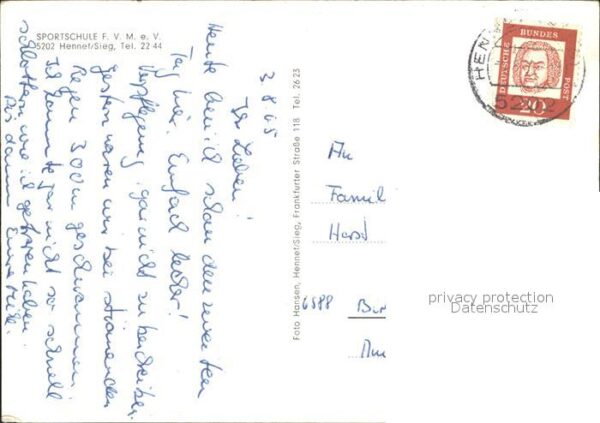 SPORTSCHULE F. V. M. e. V.
5202 Hennef/Sieg, Tel. 22 44
3. 8. 65
Ihr Lieben!
Heute bin ich schon den zweiten
Tag hier. Einfach lecker!
Verpflegung gar nicht zu beschreiben.
Gestern waren wir bei strömenden
Regen 300 m geschwommen.
Ich konnte gar nicht so schnell
schlottern wie ich gefroren habe.
Bis dann Eure
Foto Hansen, Hennef/Sieg, Frankfurter Straße 118 Tel. 2623
DEUTSCHE BUNDES POST
20
HEN
5202
An
Famil
Horst
6588 Bir
privacy protection
Datenschutz